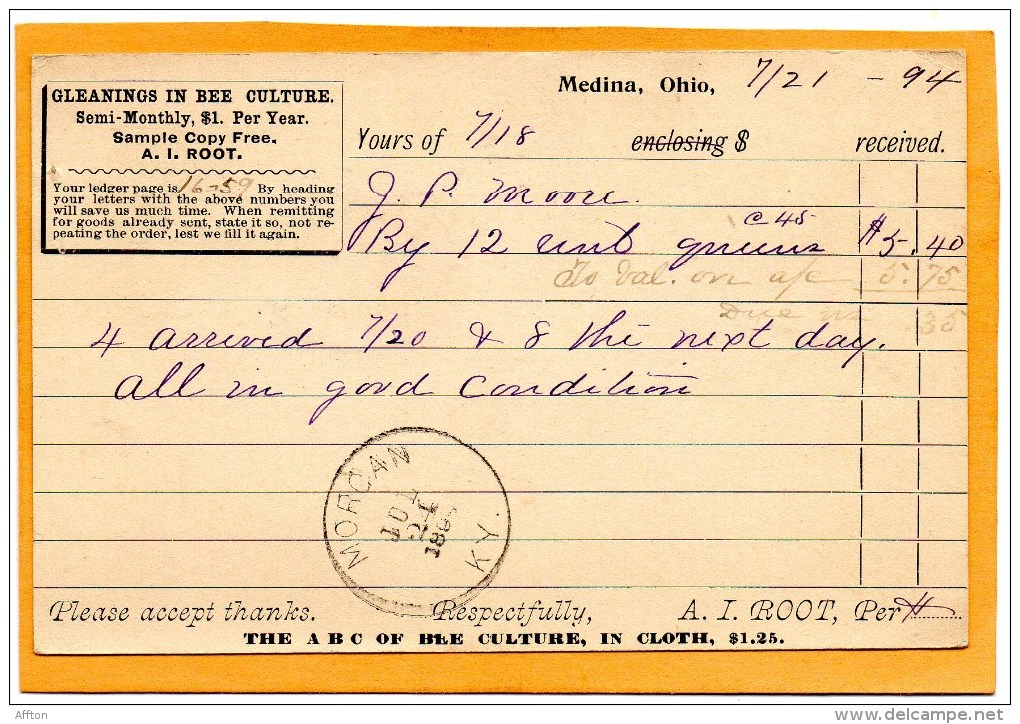 Medina, Ohio, 7/21 - 94
GLEANINGS IN BEE CULTURE.
Semi-Monthly, $1. Per Year.
Sample Copy Free.
A. I. ROOT.
Your ledger page is 16-59 By heading
your letters with the above numbers you
will save us much time. When remitting
for goods already sent, state it so, not re-
peating the order, lest we fill it again.
Yours of 7/18 enclosing $ received.
J. P. Moore.
By 12 unt queens @ 45 $5.40
To bal. on a/c 5.75
Due us .35
4 arrived 7/20 & 8 the next day.
all in good condition
MORGAN
KY.
Please accept thanks. Respectfully, A. I. ROOT, Per H
THE A B C OF BEE CULTURE, IN CLOTH, $1.25.
Affton
www.delcampe.net